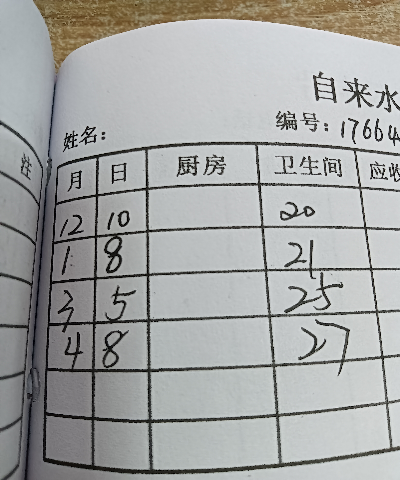 注
自来水
姓名: 编号: 17664
月 日 厨房 卫生间 应收
12 10 20
1 8 21
3 5 25
4 8 27